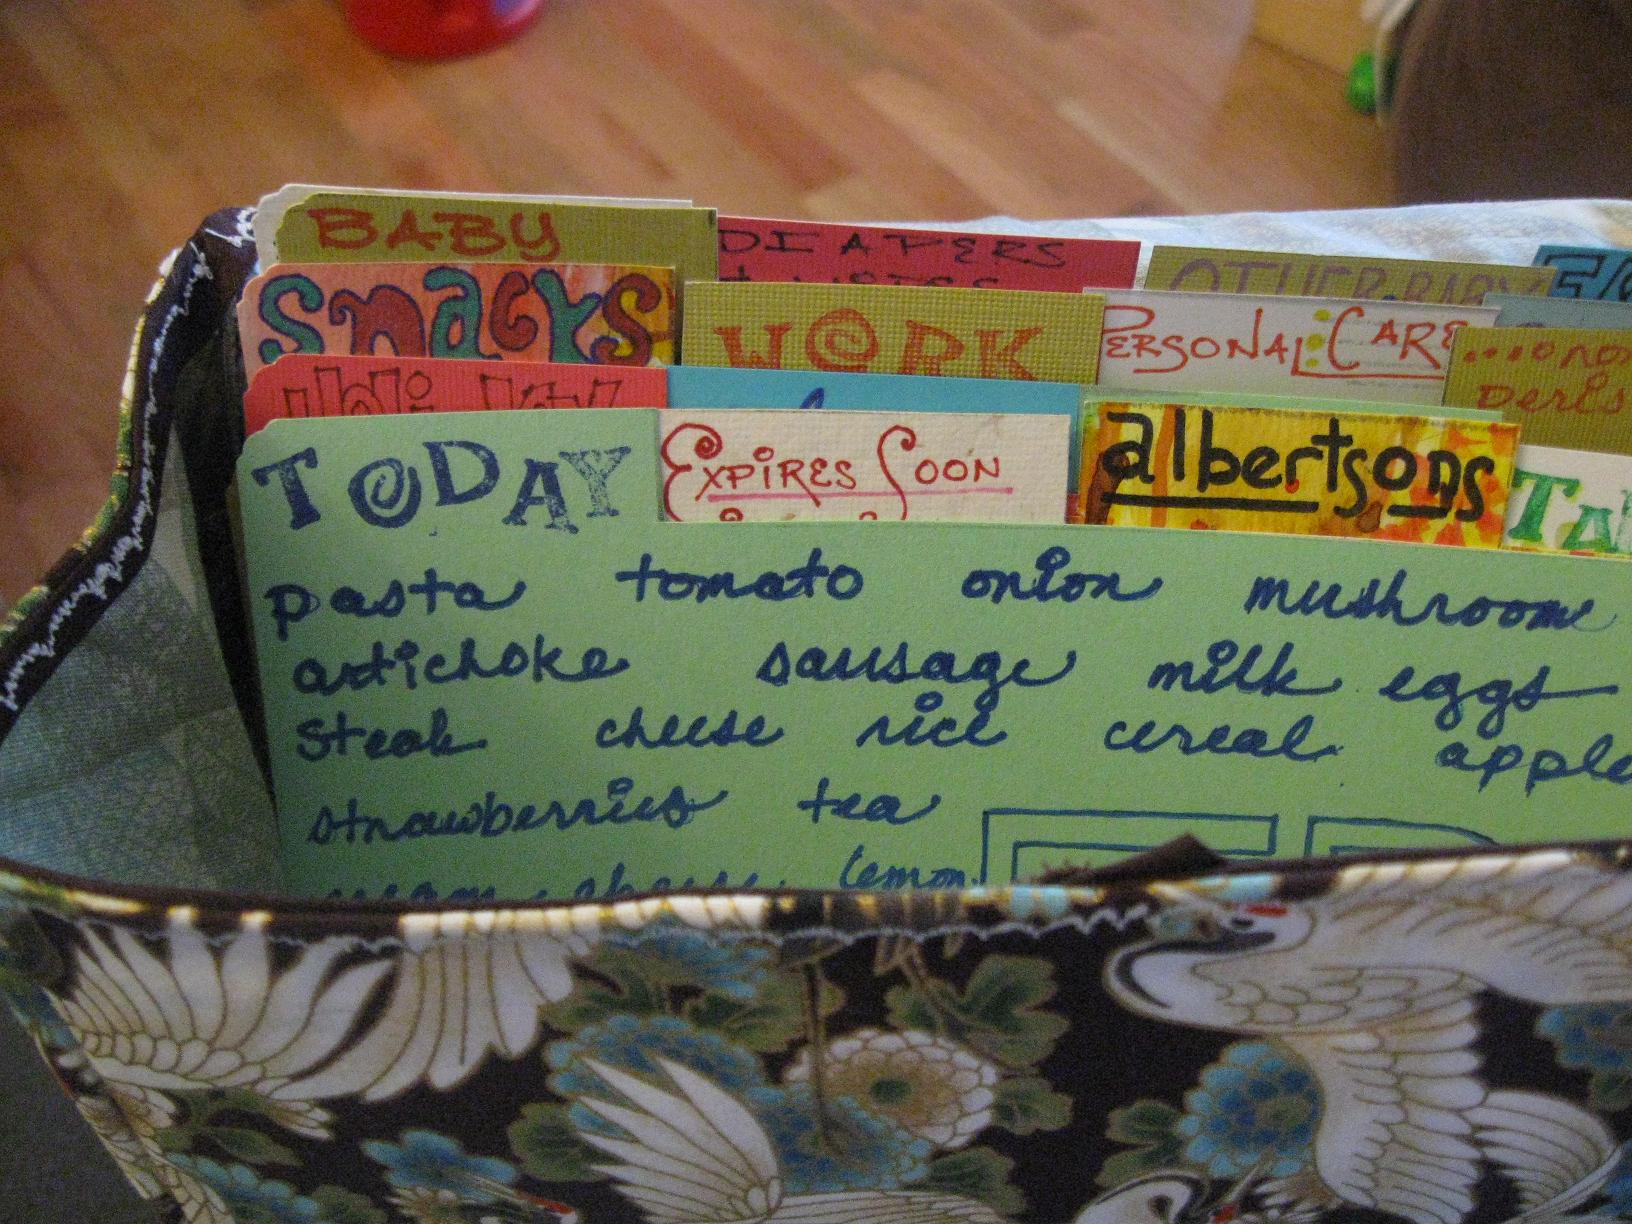 BABY
DIAPERS
OTHER BABY
SNACKS
WORK
PERSONAL CARE
TODAY
EXPIRES SOON
albertsons
pasta tomato onion mushroom
artichoke sausage milk eggs
steak cheese rice cereal apple
strawberries tea
cream cheese lemon